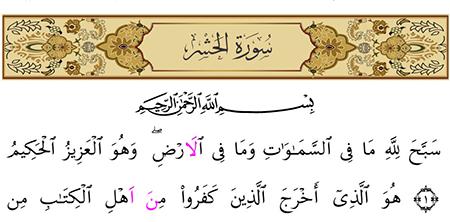 سُورَةُ الحَشْرِ
بِسْمِ اللَّهِ الرَّحْمَٰنِ الرَّحِيمِ
سَبَّحَ لِلَّهِ مَا فِى السَّمَـٰوَاتِ وَمَا فِى الَارْضِۖ وَهُوَ الْعَزِيزُ الْحَكِيمُ
﴿١﴾ هُوَ الَّذِىٓ أَخْرَجَ الَّذِينَ كَفَرُوا۟ مِنَ اَهْلِ الْكِتَـٰبِ مِن